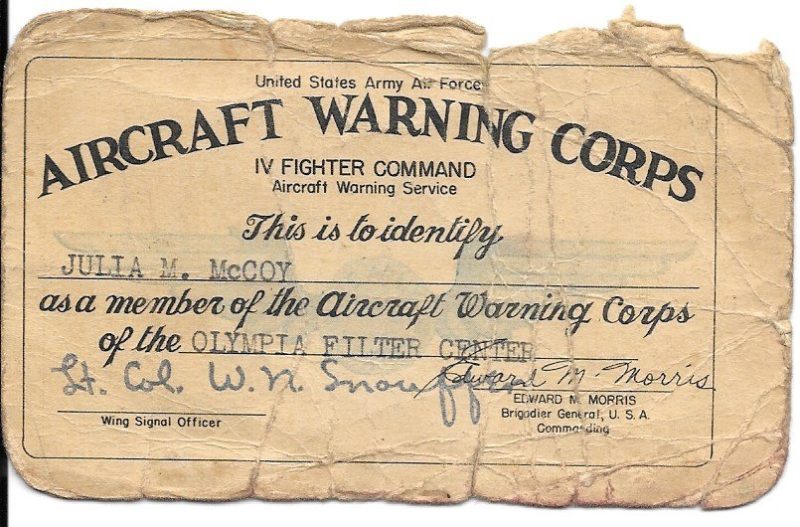 United States Army Air Forces
AIRCRAFT WARNING CORPS
IV FIGHTER COMMAND
Aircraft Warning Service
This is to identify
JULIA M. McCOY
as a member of the Aircraft Warning Corps
of the OLYMPIA FILTER CENTER
Lt. Col. W. N. Edward M. Morris
EDWARD M. MORRIS
Wing Signal Officer Brigadier General, U. S. A.
Commanding